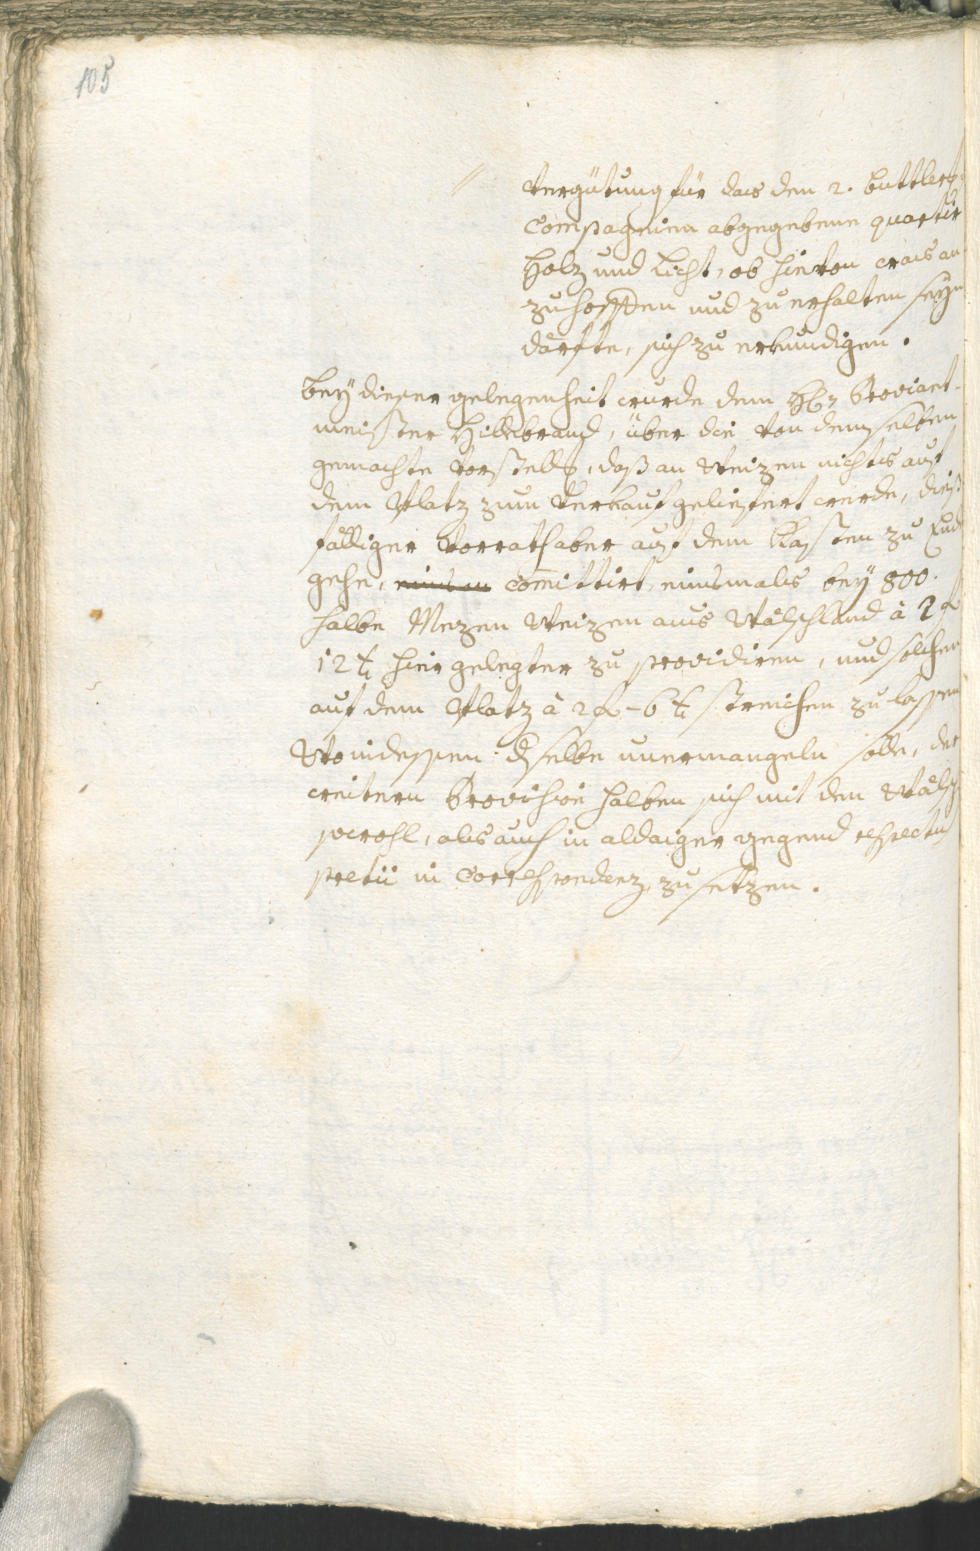 105
Vergütung für das den 2. Buttleri-
Compagnien abgegebene quartir
Holz und Licht, ob hievon waß an
zu hoffen und zu erhalten seyn
därfte, sich zu erkundigen.
bey dieser gelegenheit wurde dem H: Proviant-
meister Hildebrand, über die von demselben
gemachte vorstellg, daß an Weizen nichts auf
dem Platz zum verkauf geliefert werde, dieß
fälliger Vorrath aber auf dem Kasten zu End
gehe, comittirt, einsmals bey 800.
halbe Mezen Weizen aus Wälschland à 2 f
12 x hier gelegter zu providiren, und solchen
auf dem Platz à 2 f - 6 x streichen zu lassen
Von dessen derselbe unermangeln solle, der
weitern Provision halben sich mit den Wälsch
sowohl, als auch in aldasiger gegend respectu
pretii in Correspondenz zu setzen.